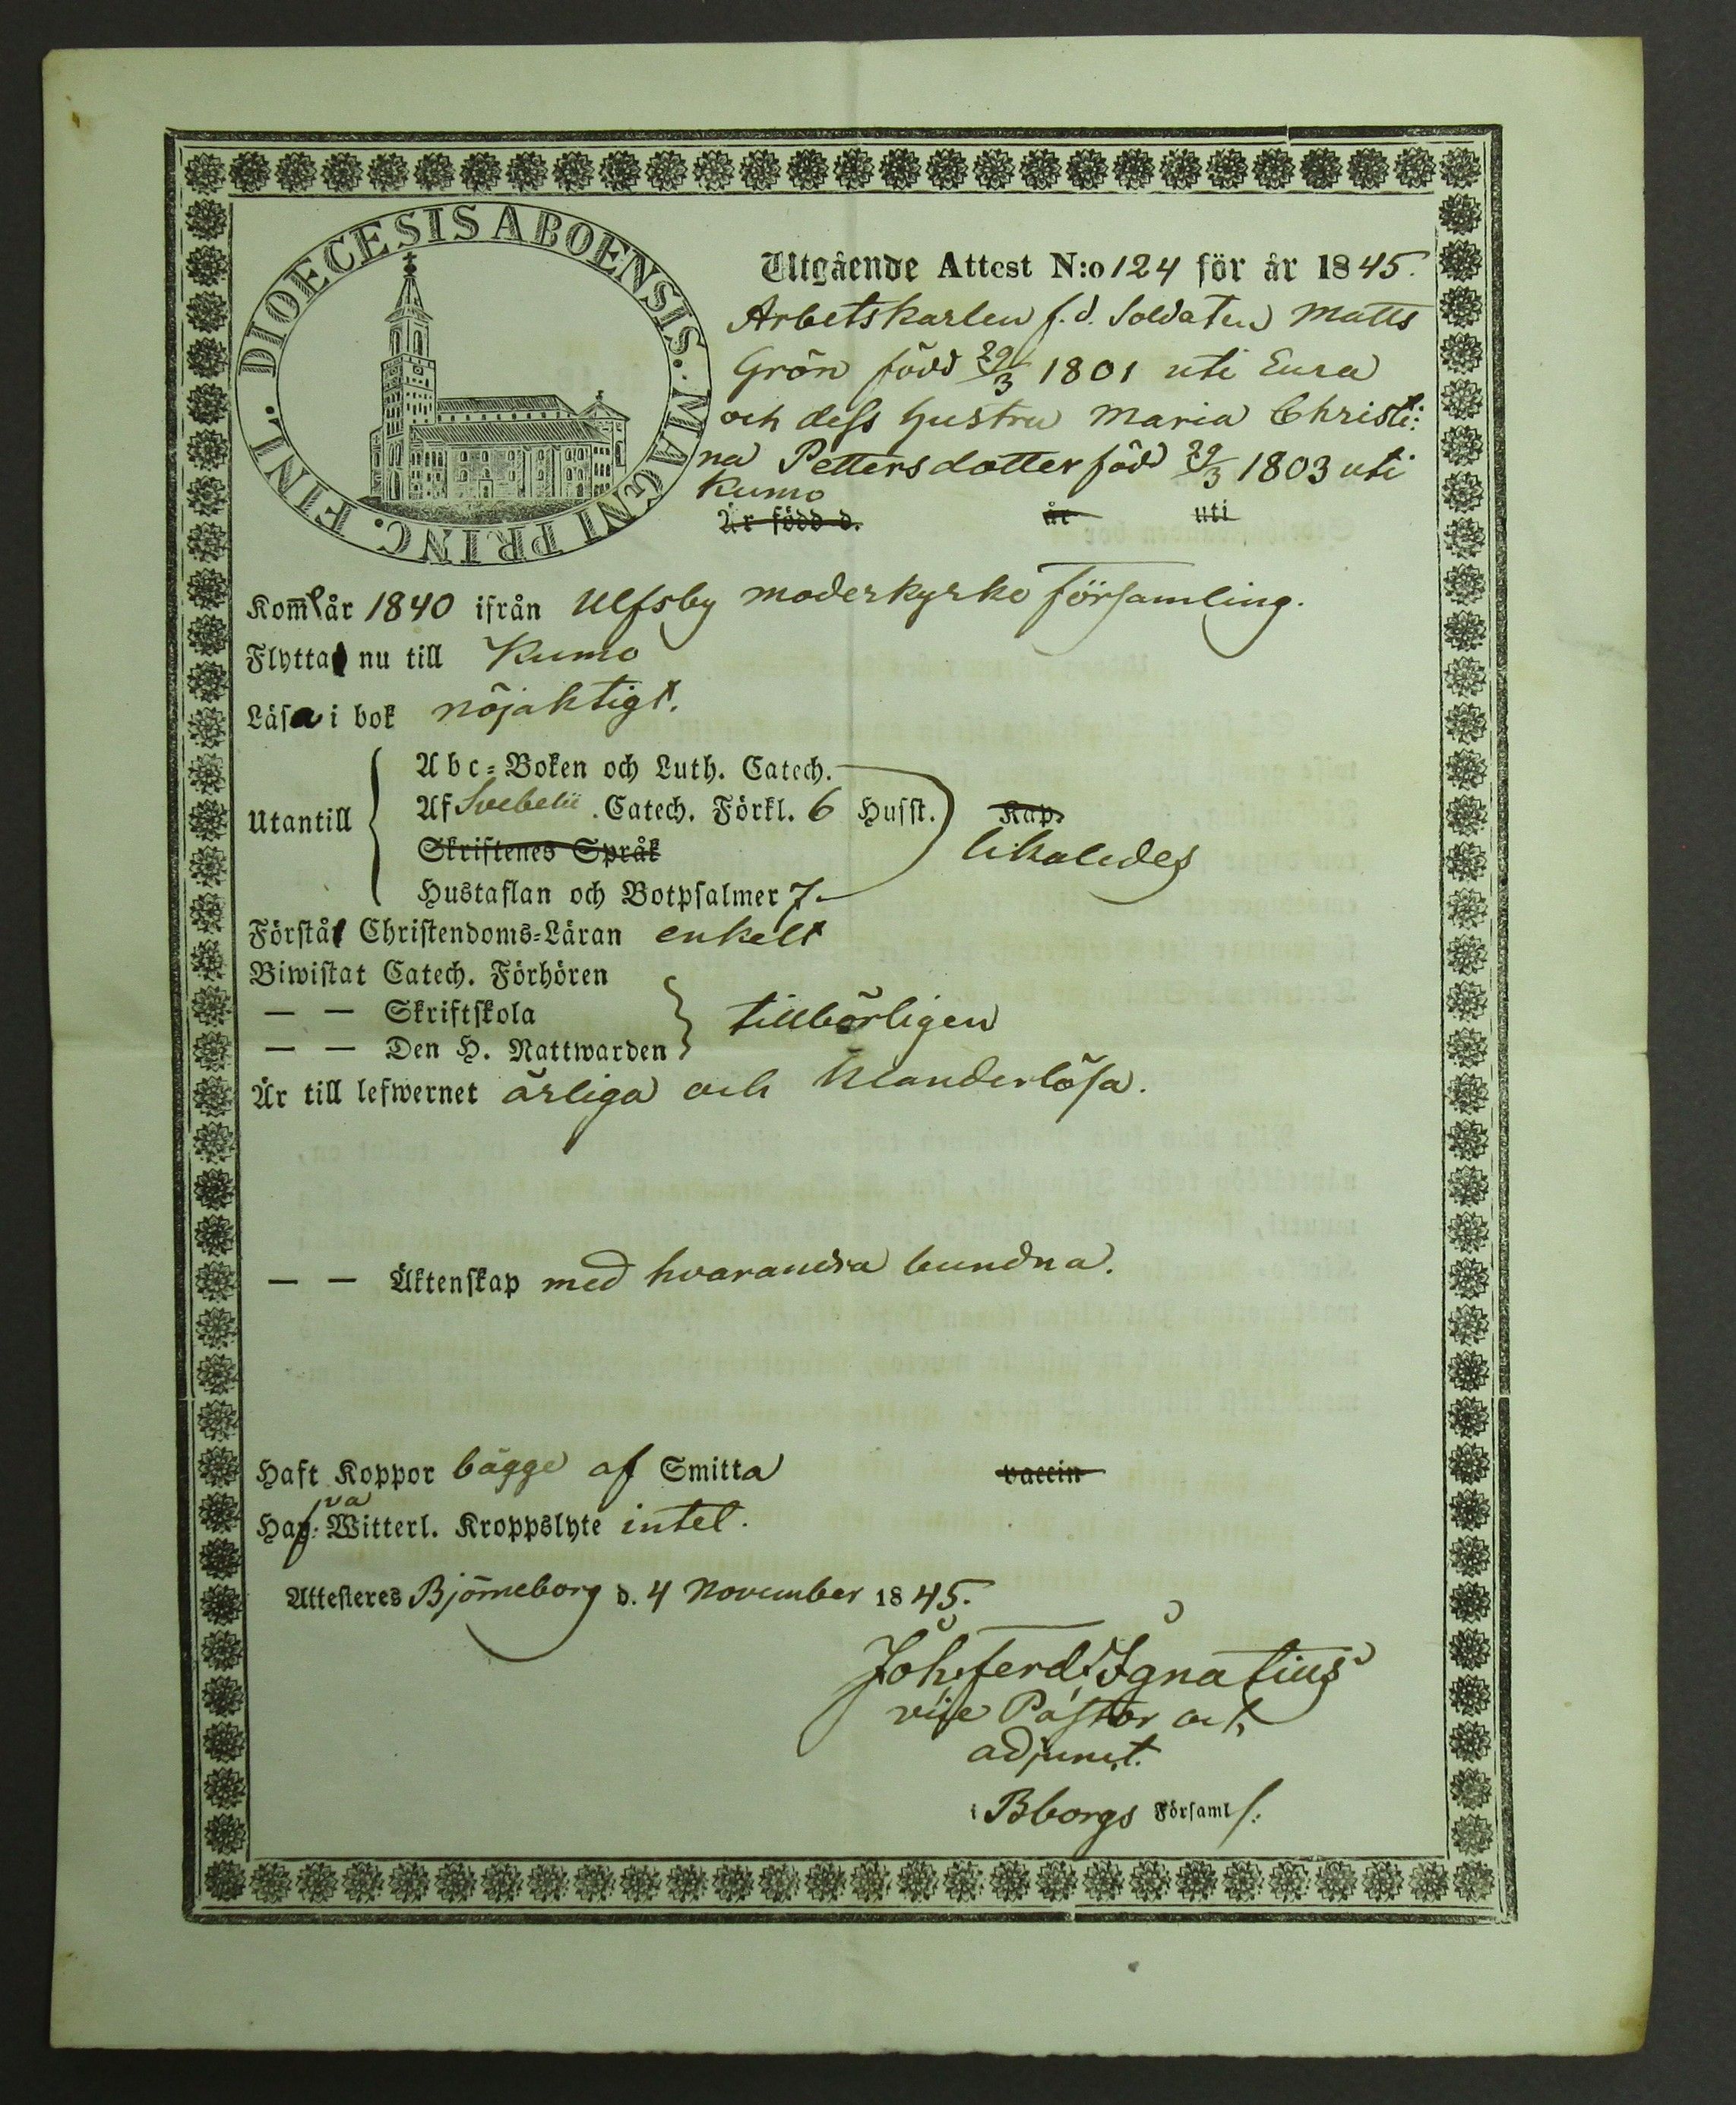 DIOECESIS ABOENSIS. MAGNI PRINC. FINL.
Utgående Attest N:o 124 för år 1845.
Arbetskarlen f. d. Soldaten Matts
Grön född 29/3 1801 uti Eura
och dess hustru Maria Christi:
na Pettersdotter född 29/3 1803 uti
Kumo
Är född d. år uti
Kom år 1840 ifrån Ulfsby moderkyrko församling.
Flytta nu till Kumo
Läsa i bok nöjaktigt.
Utantill
Abc-Boken och Luth. Catech.
Af Svebelii Catech. Förkl. 6 Husst. Kap.
Skriftenes Språk
likaledes
Hustaflan och Botpsalmer 7
Förstå Christendoms-Läran enkelt
Biwistat Catech. Förhören
— — Skriftskola
tillbörligen
— — Den H. Nattwarden
Är till lefwernet ärliga och klanderlösa.
— — Äktenskap med hvarandra bundna.
Haft Koppor bägge af Smitta vaccin
Hafva Witterl. Kroppslyte intet.
Attesteres Björneborg d. 4 November 1845.
Joh. Ferd. Ignatius
vice Pastor och
adjunct.
i Bborgs Församl.